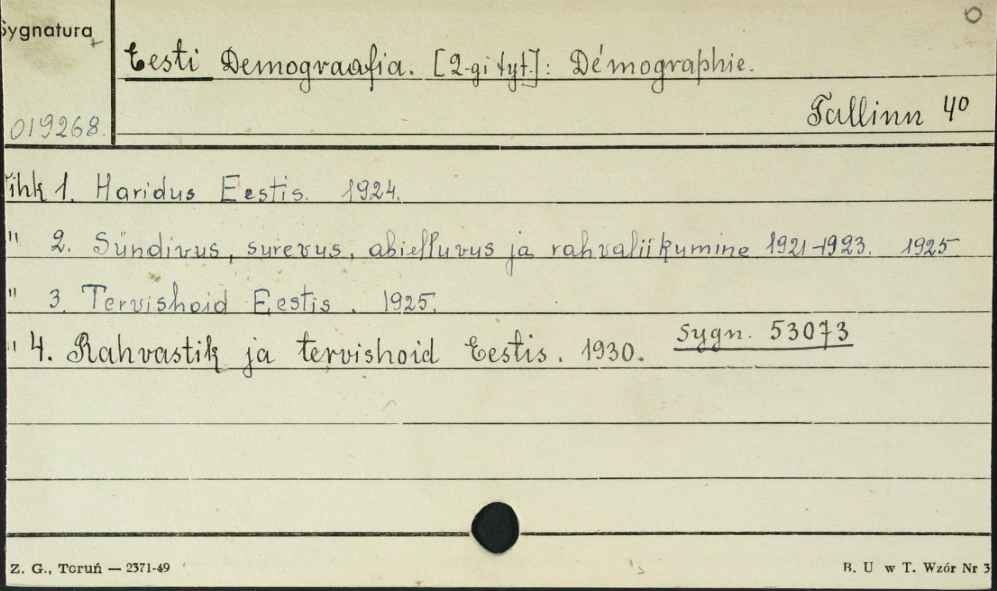 Sygnatura
Eesti Demograafia. [2-gi tyt.]: Démographie.
Tallinn 4°
019268.
ihk 1. Haridus Eestis. 1924.
" 2. Sündivus, surevus, abielluvus ja rahvaliikumine 1921-1923. 1925
" 3. Tervishoid Eestis. 1925.
" 4. Rahvastik ja tervishoid Eestis. 1930. Sygn. 53073
Z. G., Toruń — 2371-49
B. U w T. Wzór Nr 3